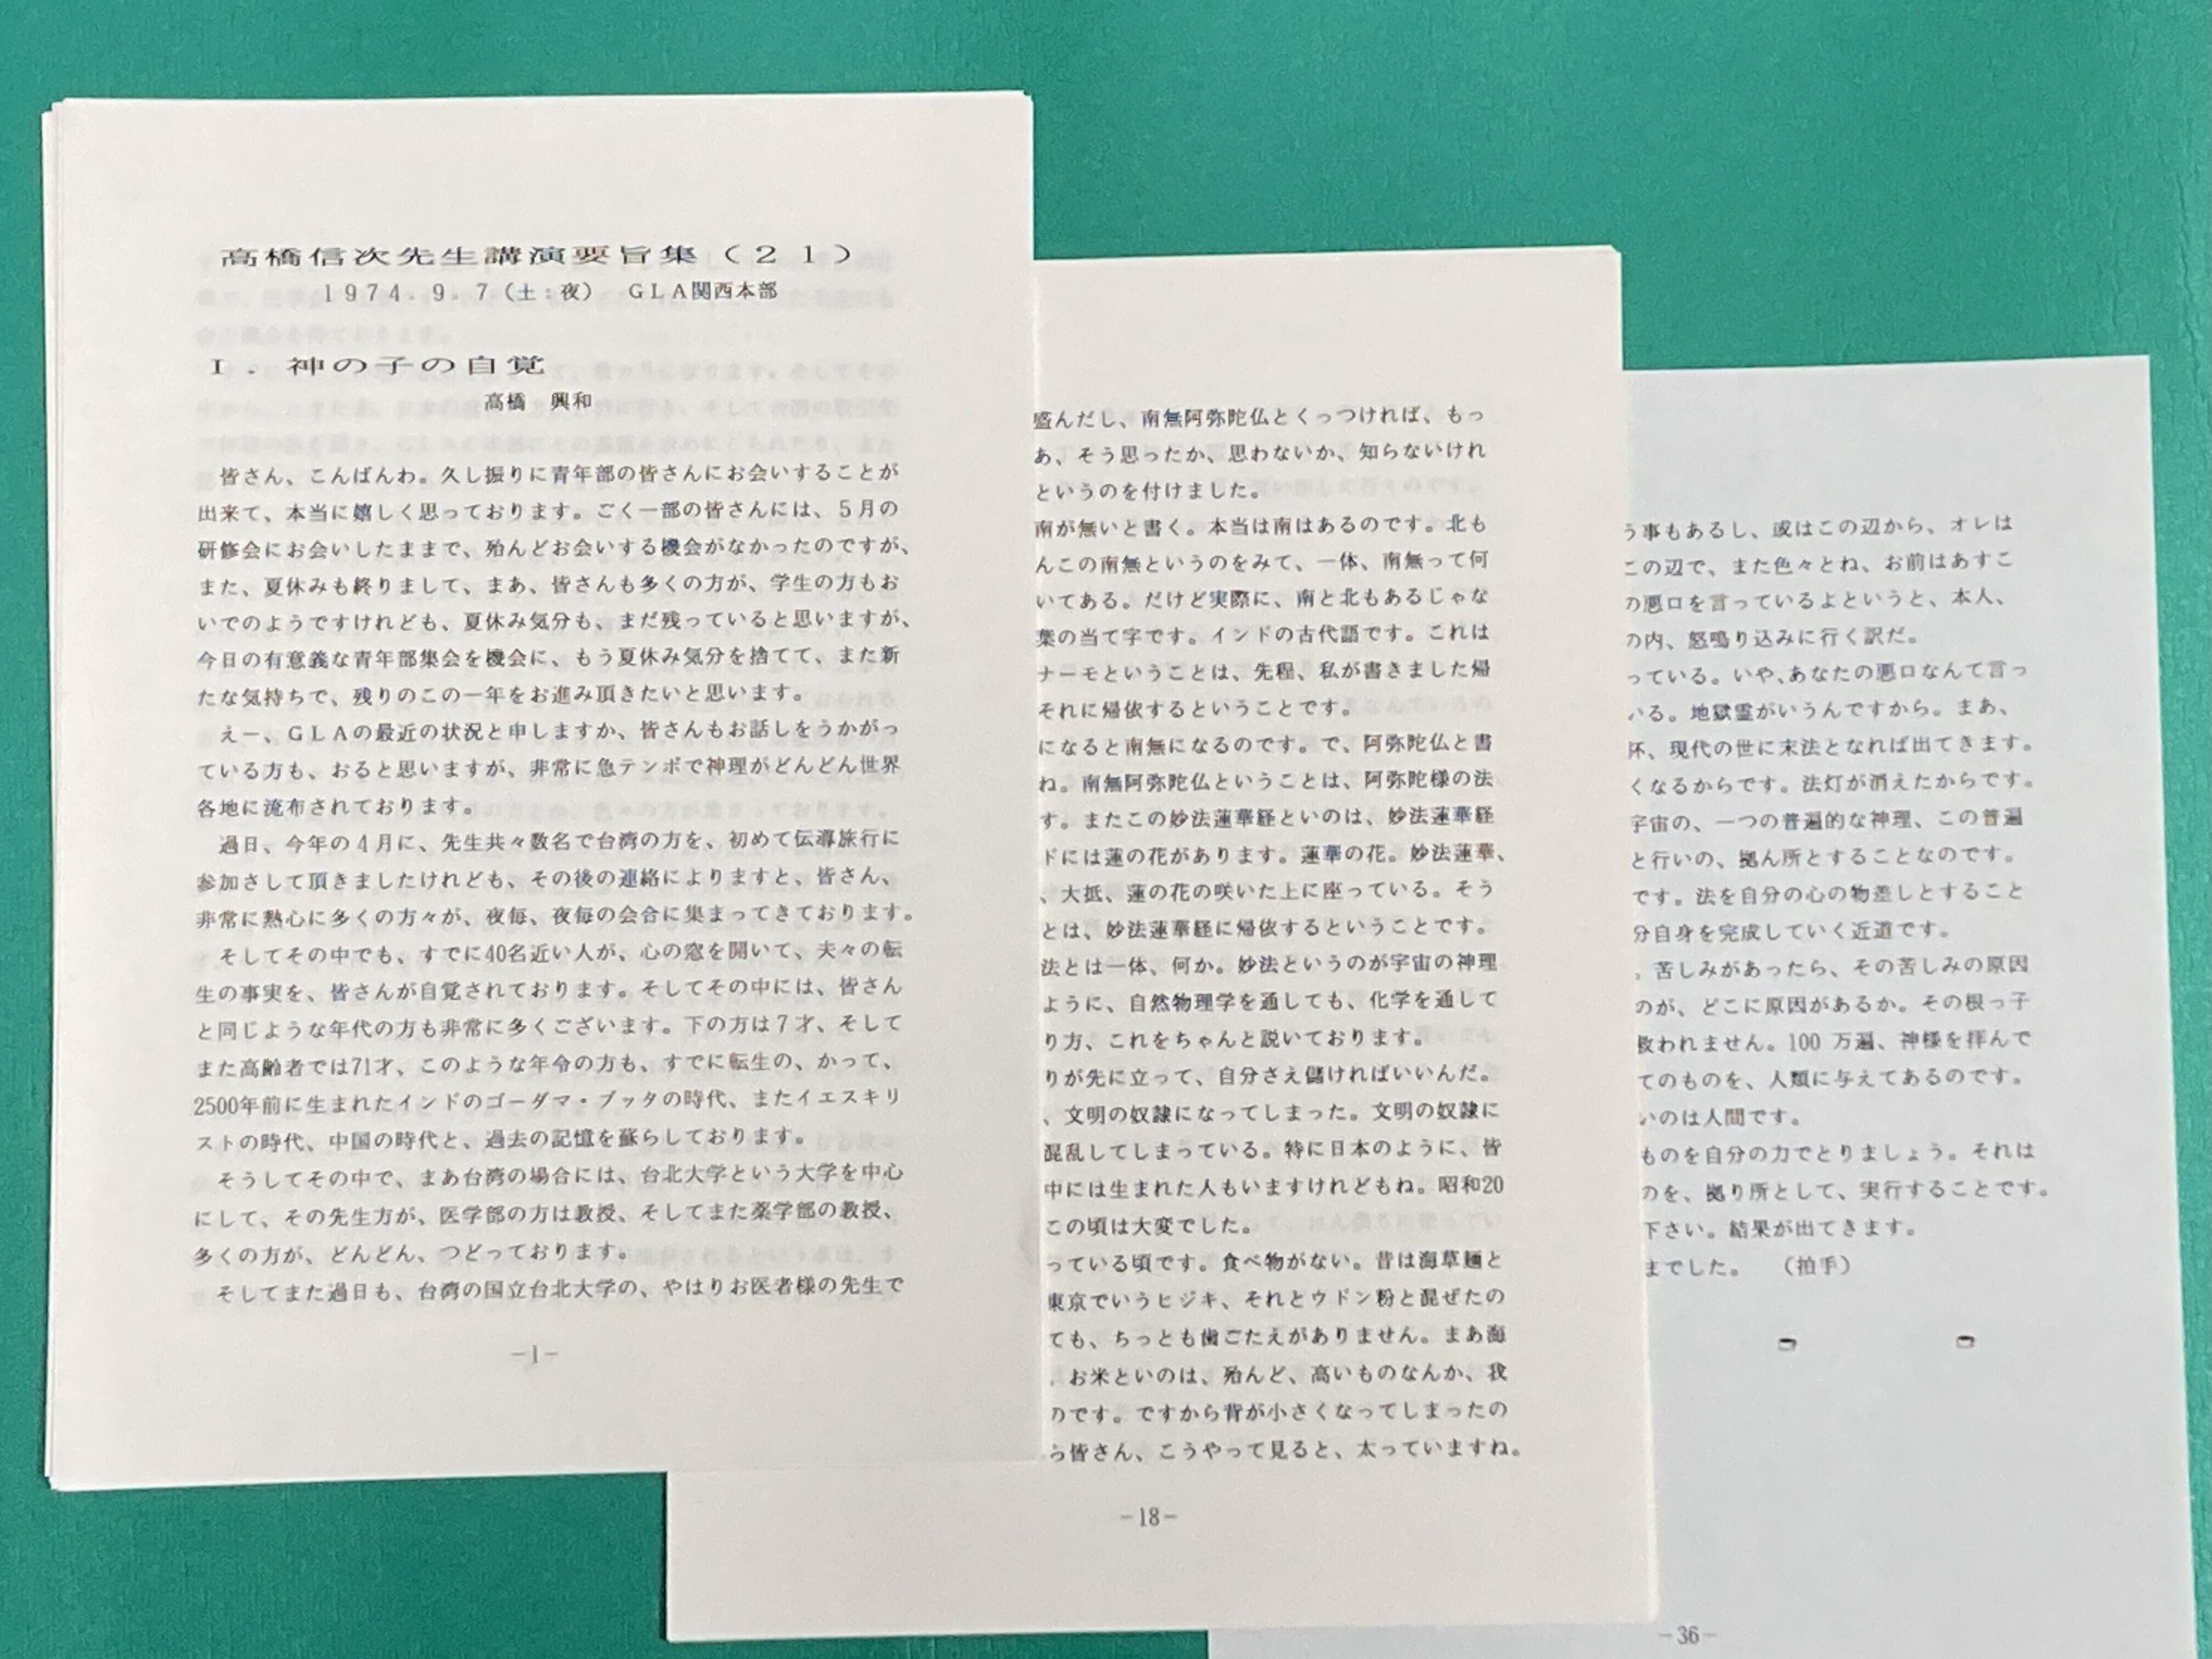 高橋信次先生講演要旨集（２１）
１９７４．９．７（土：夜）　ＧＬＡ関西本部
Ｉ．神の子の自覚
高橋　興和
皆さん、こんばんわ。久し振りに青年部の皆さんにお会いすることが
出来て、本当に嬉しく思っております。ごく一部の皆さんには、５月の
研修会にお会いしたままで、殆んどお会いする機会がなかったのですが、
また、夏休みも終りまして、まあ、皆さんも多くの方が、学生の方もお
いでのようですけれども、夏休み気分も、まだ残っていると思いますが、
今日の有意義な青年部集会を機会に、もう夏休み気分を捨てて、また新
たな気持ちで、残りのこの一年をお進み頂きたいと思います。
えー、ＧＬＡの最近の状況と申しますか、皆さんもお話しをうかがっ
ている方も、おると思いますが、非常に急テンポで神理がどんどん世界
各地に流布されております。
過日、今年の４月に、先生共々数名で台湾の方を、初めて伝導旅行に
参加さして頂きましたけれども、その後の連絡によりますと、皆さん、
非常に熱心に多くの方々が、夜毎、夜毎の会合に集まってきております。
そしてその中でも、すでに40名近い人が、心の窓を開いて、夫々の転
生の事実を、皆さんが自覚されております。そしてその中には、皆さん
と同じような年代の方も非常に多くございます。下の方は７才、そして
また高齢者では71才、このような年令の方も、すでに転生の、かって、
2500年前に生まれたインドのゴーダマ・ブッタの時代、またイエスキリ
ストの時代、中国の時代と、過去の記憶を蘇らしております。
そうしてその中で、まあ台湾の場合には、台北大学という大学を中心
にして、その先生方が、医学部の方は教授、そしてまた薬学部の教授、
多くの方が、どんどん、つどっております。
そしてまた過日も、台湾の国立台北大学の、やはりお医者様の先生で
－1－
盛んだし、南無阿弥陀仏とくっつければ、もっ
あ、そう思ったか、思わないか、知らないけれ
というのを付けました。
南が無いと書く。本当は南はあるのです。北も
んこの南無というのをみて、一体、南無って何
いてある。だけど実際に、南と北もあるじゃな
葉の当て字です。インドの古代語です。これは
ナーモということは、先程、私が書きました帰
それに帰依するということです。
になると南無になるのです。で、阿弥陀仏と書
ね。南無阿弥陀仏ということは、阿弥陀様の法
す。またこの妙法蓮華経といのは、妙法蓮華経
ドには蓮の花があります。蓮華の花。妙法蓮華、
、大抵、蓮の花の咲いた上に座っている。そう
とは、妙法蓮華経に帰依するということです。
法とは一体、何か。妙法というのが宇宙の神理
ように、自然物理学を通しても、化学を通して
り方、これをちゃんと説いております。
りが先に立って、自分さえ儲ければいいんだ。
、文明の奴隷になってしまった。文明の奴隷に
混乱してしまっている。特に日本のように、皆
中には生まれた人もいますけれどもね。昭和20
この頃は大変でした。
っている頃です。食べ物がない。昔は海草麺と
東京でいうヒジキ、それとウドン粉と混ぜたの
ても、ちっとも歯ごたえがありません。まあ海
お米といのは、殆んど、高いものなんか、我
のです。ですから背が小さくなってしまったの
ら皆さん、こうやって見ると、太っていますね。
－18－
う事もあるし、或はこの辺から、オレは
この辺で、また色々とね、お前はあすこ
の悪口を言っているよというと、本人、
の内、怒鳴り込みに行く訳だ。
っている。いや、あなたの悪口なんて言っ
いる。地獄霊がいうんですから。まあ、
、現代の世に末法となれば出てきます。
くなるからです。法灯が消えたからです。
宇宙の、一つの普遍的な神理、この普遍
と行いの、拠ん所とすることなのです。
です。法を自分の心の物差しとすること
分自身を完成していく近道です。
。苦しみがあったら、その苦しみの原因
のが、どこに原因があるか。その根っ子
救われません。100 万遍、神様を拝んで
てのものを、人類に与えてあるのです。
いのは人間です。
ものを自分の力でとりましょう。それは
のを、拠り所として、実行することです。
下さい。結果が出てきます。
までした。　（拍手）
－36－